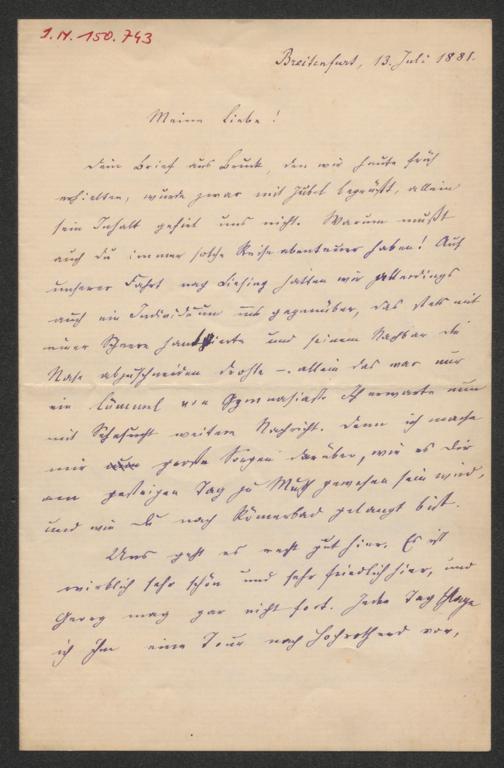 J.N. 150.743
Breitenfurt, 13. Juli 1881.
Meine Liebe!
Dein Brief aus Bruck, den wir heute früh
erhielten, wurde zwar mit Jubel begrüßt, allein
sein Inhalt gefiel uns nicht. Warum mußt
auch du immer solche Reiseabenteuer haben! Auf
unserer Fahrt nach Liesing hatten wir allerdings
auch ein Individuum uns gegenüber, das stets mit
einer Scheere hantirte und seinem Nachbar die
Nase abzuschneiden drohte – allein das war nur
ein Lümmel von Gymnasiast. Ich erwarte nun
mit Sehnsucht weitere Nachricht. Denn ich mache
mir große Sorgen darüber, wie es Dir
am gestrigen Tag zu Muth gewesen sein wird,
und wie Du nach Römerbad gelangt bist.
Uns geht es recht gut hier. Es ist
wirklich sehr schön und sehr friedlich hier, und
Georg mag gar nicht fort. Jeden Tag schlage
ich ihm eine Tour nach Hochrotherd vor,